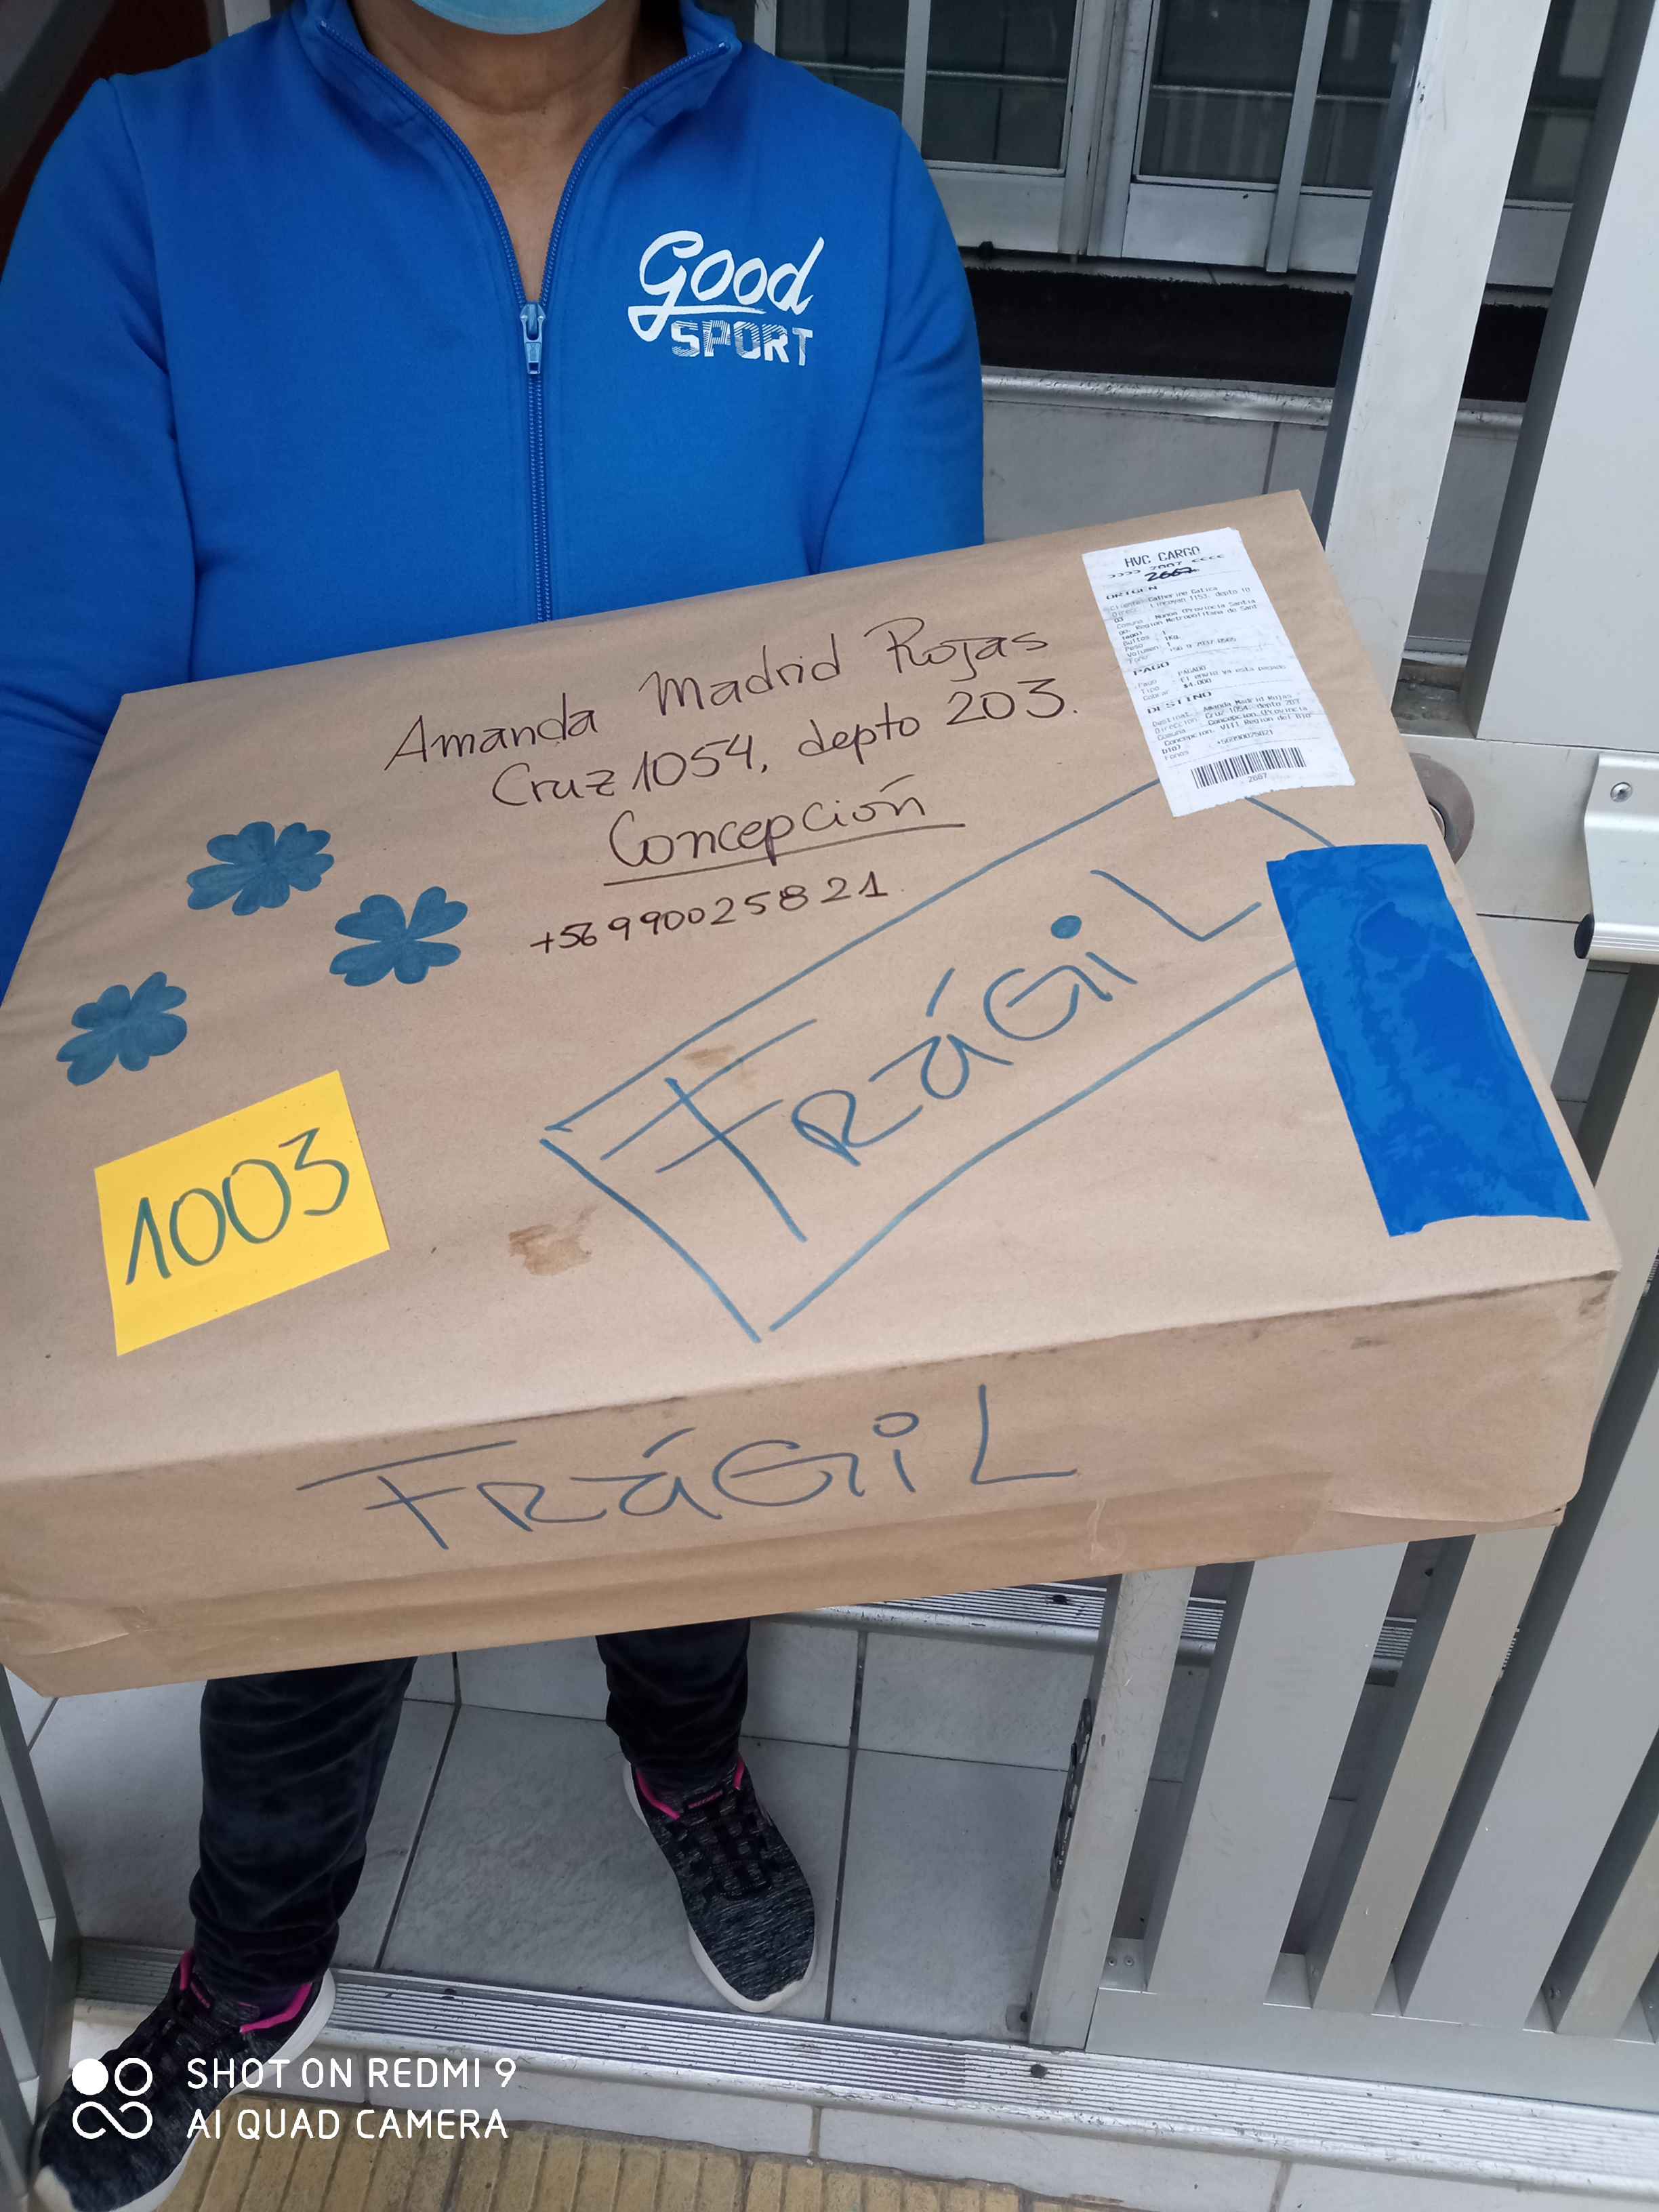 Good
SPORT
HVC CARGO
>>>> 2607 <<<<
2667
ORIGEN
Catherine Gatica
depto 10
03
Comuna : Ñuñoa (Provincia Santia
go, Region Metropolitana de Sant
iago)
Bultos : 1
Peso : 1KG.
Volumen :
Fono :
PAGO
Pago : PAGADO
Tipo : El envio ya esta pagado
Cobrar : $4.000
DESTINO
Destinat.: Amanda Madrid Rojas
Direccion: Cruz 1054, depto 203
Comuna : Concepcion (Provincia
Concepcion, VIII Region del Bio
bio)
Fonos : +56990025821
2607
Amanda Madrid Rojas
Cruz 1054, depto 203.
Concepción
+56990025821
FRÁGiL
1003
FRÁGiL
SHOT ON REDMI 9
AI QUAD CAMERA